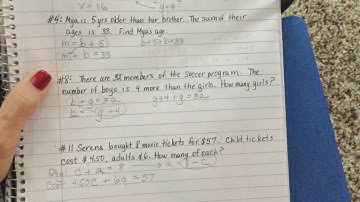 x = 16 y=4
#4: Mya is 5 yrs older than her brother. The sum of their
ages is 33. Find Mya's age.
m = b + 5 b+5+b=33
m + b = 33
#8: There are 32 members of the soccer program. The
number of boys is 4 more than the girls. How many girls?
b + g = 32 g+4+g=32
b = (g+4)
#11 Serena bought 8 movie tickets for $57. Child tickets
cost $4.50, adults $6. How many of each?
c + a = 8 a = 8-c
Cost 4.50c + 6a = 57